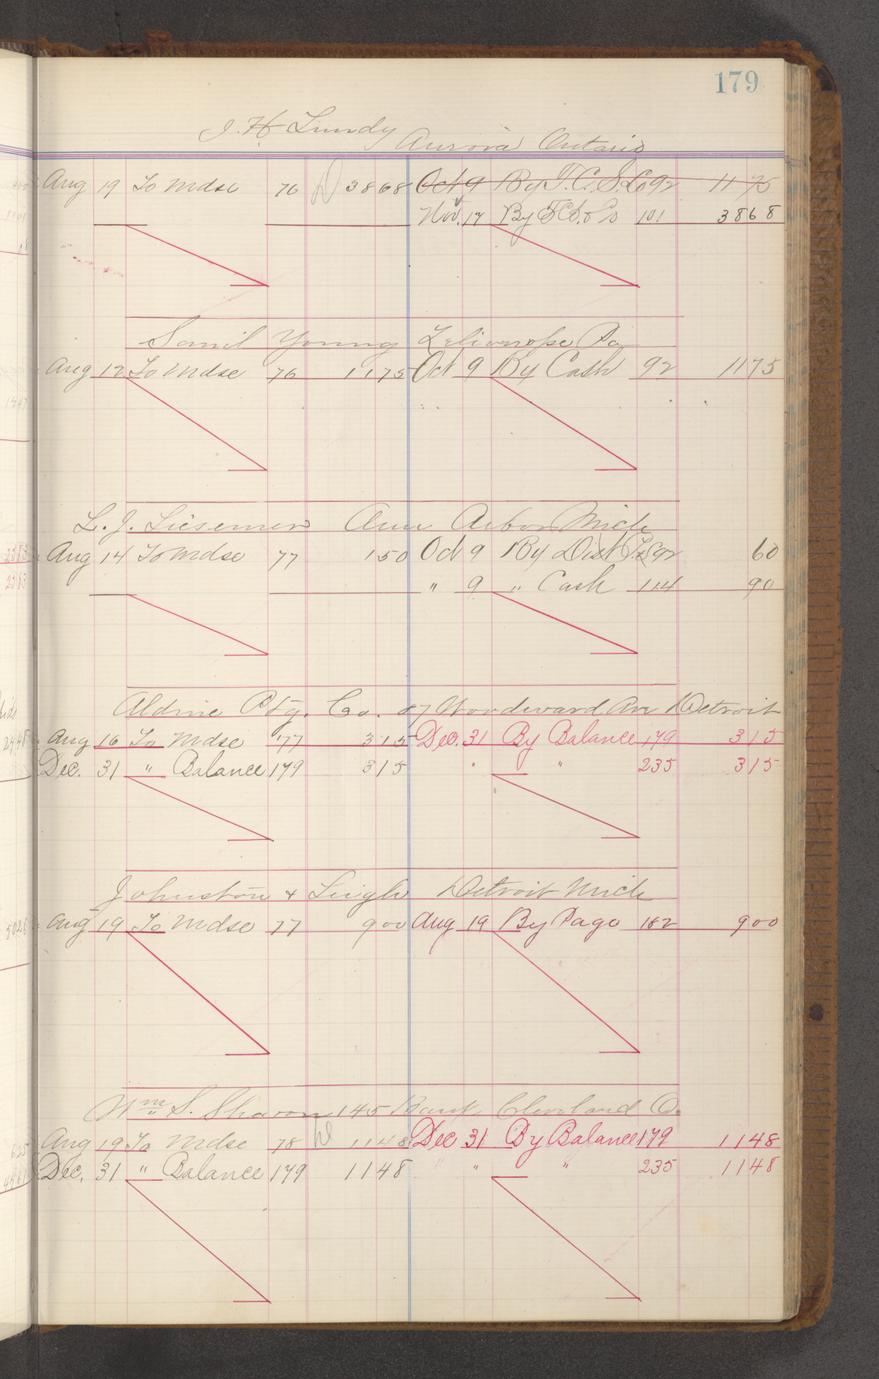 179
J. H. Lundy Aurora Ontario
Aug 19 To Mdse 76 3868 Oct 9 By T. C. S. Co 92 11 75
Nov. 17 By 101 3868
Saml Young Zelienople Pa
Aug 12 To Mdse 76 1175 Oct 9 By Cash 92 1175
L. J. Liesemer Ann Arbor Mich
Aug 14 To Mdse 77 150 Oct 9 By Dist 92 60
" 9 " Cash 114 90
Aldine Ptg. Co. 87 Woodward Ave Detroit
Aug 16 To Mdse 77 315 Dec. 31 By Balance 179 315
Dec. 31 " Balance 179 315 " " 235 315
Johnston & Leigh Detroit Mich
Aug 19 To Mdse 77 900 Aug 19 By Page 162 900
Wm S. Sharon 145 Bank Cleveland O.
Aug 19 To Mdse 78 1148 Dec 31 By Balance 179 1148
Dec. 31 " Balance 179 1148 " " 235 1148